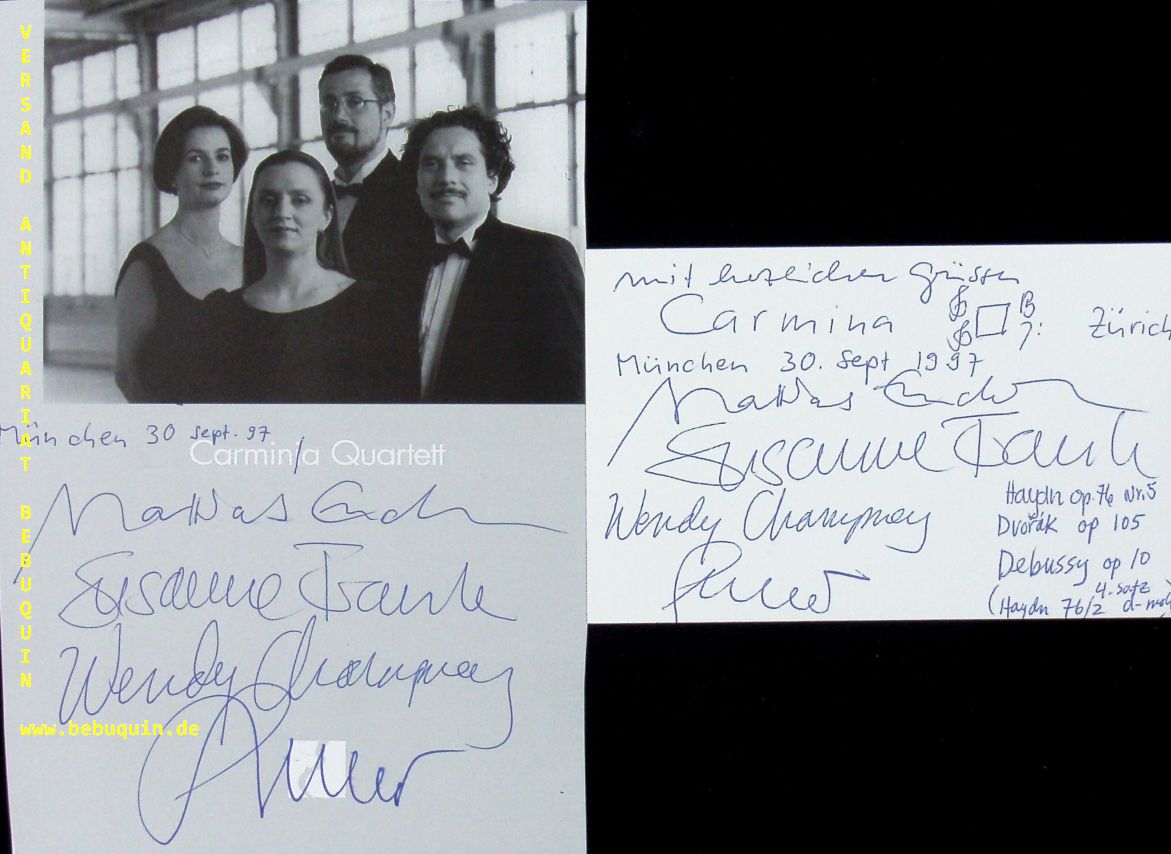 VERSAND ANTIQUARIAT BEBUQUIN
www.bebuquin.de
München 30 Sept. 97
Carmina Quartett
Matthias Enderle
Susanne Frank
Wendy Champney
mit herzlichen Grüssen
Carmina Zürich
München 30. Sept 1997
Matthias Enderle
Susanne Frank
Wendy Champney
Haydn op. 76 Nr. 5
Dvořák op 105
Debussy op 10
4. Satz
(Haydn 76/2 d-moll